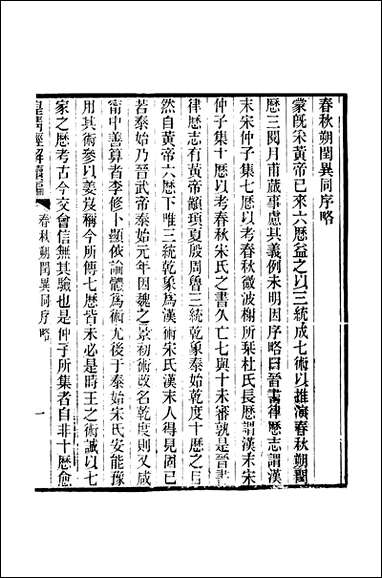 春秋朔閏異同序略
蒙旣釆黃帝已來六歷益之以三統成七術以推演春秋朔閏
歷三閱月甫蕆事慮其義例未明因序略曰晉書律歷志謂漢
末宋仲子集七歷以考春秋微波榭所栞杜氏長歷謂漢末宋
仲子集十歷以考春秋宋氏之書久亡七與十未審孰是晉書
律歷志有黃帝顓頊夏殷周魯三統乾象泰始乾度十歷之目
然自黃帝六歷下唯三統乾象爲漢術宋氏漢末人得見固已
若泰始乃晉武帝泰始元年因魏之景初術改名乾度則又咸
甯中善算者李修卜顯依論體爲術尤後于泰始宋氏安能豫
用其術參以姜岌稱今所傳七歷皆未必是時王之術誠以七
家之歷考古今交會信無其驗也是仲子所集者自非十歷愈
皇淸經解續編
春秋朔閏異同序略
一